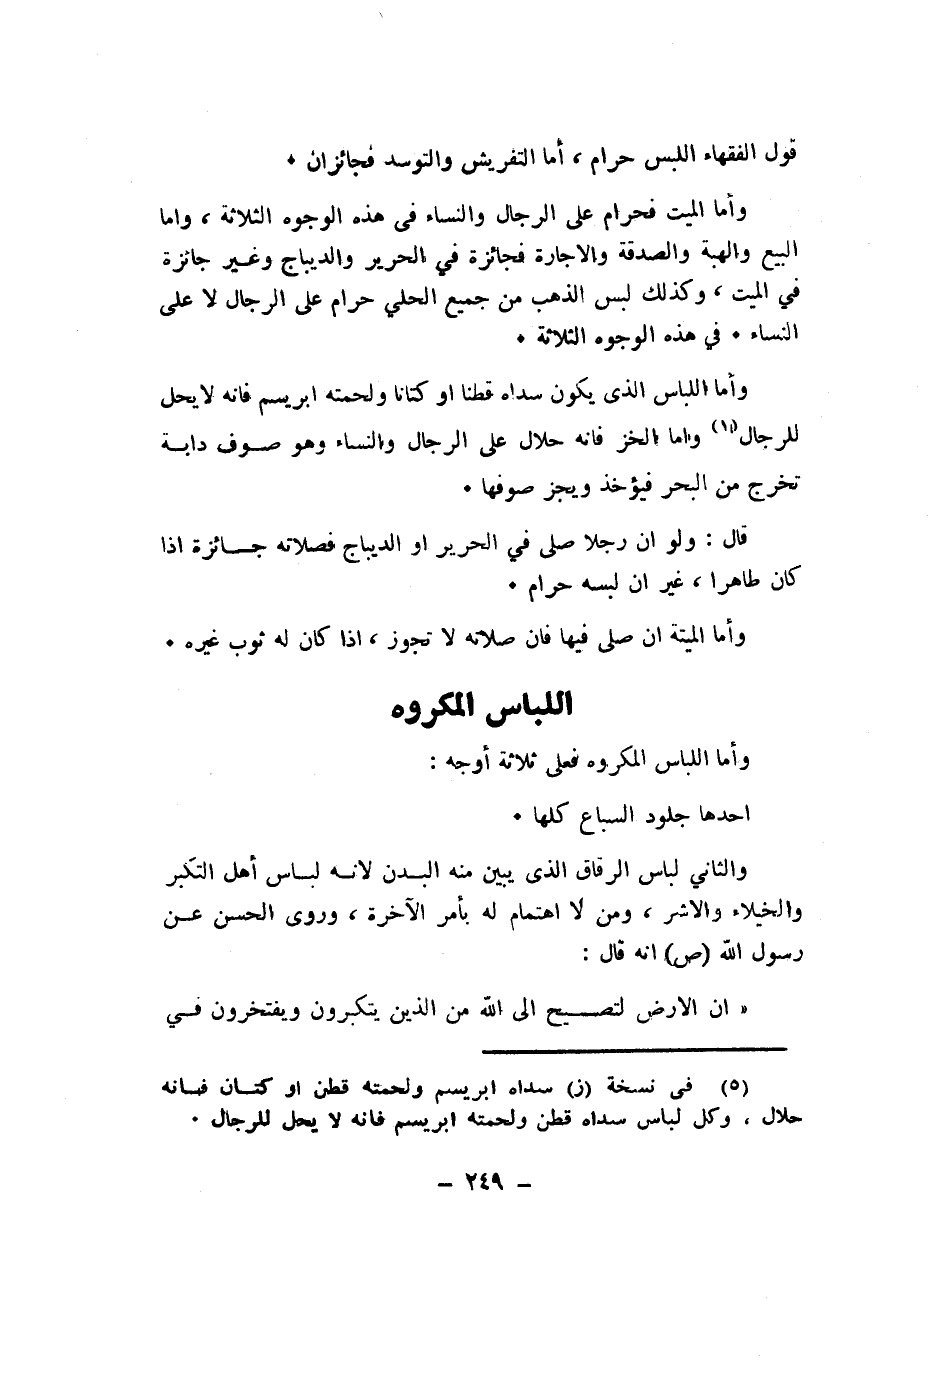 قول الفقهاء اللبس حرام ، أما التفريش والتوسد فجائزان ٠
وأما الميت فحرام على الرجال والنساء فى هذه الوجوه الثلاثة ، واما
البيع والهبة والصدقة والاجارة فجائزة في الحرير والديباج وغير جائزة
في الميت ، وكذلك لبس الذهب من جميع الحلي حرام على الرجال لا على
النساء ٠ في هذه الوجوه الثلاثة ٠
وأما اللباس الذى يكون سداه قطنا او كتانا ولحمته ابريسم فانه لايحل
للرجال(١) واما الخز فانه حلال على الرجال والنساء وهو صوف دابة
تخرج من البحر فيؤخذ ويجز صوفها ٠
قال : ولو ان رجلا صلى في الحرير او الديباج فصلاته جائزة اذا
كان طاهرا ، غير ان لبسه حرام ٠
وأما الميتة ان صلى فيها فان صلاته لا تجوز ، اذا كان له ثوب غيره ٠
اللباس المكروه
وأما اللباس المكروه فعلى ثلاثة أوجه :
احدها جلود السباع كلها ٠
والثاني لباس الرقاق الذى يبين منه البدن لانه لباس أهل التكبر
والخيلاء والاشر ، ومن لا اهتمام له بأمر الآخرة ، وروى الحسن عن
رسول الله (ص) انه قال :
« ان الارض لتصيح الى الله من الذين يتكبرون ويفتخرون في
(٥) فى نسخة (ز) سداه ابريسم ولحمته قطن او كتان فانه
حلال ، وكل لباس سداه قطن ولحمته ابريسم فانه لا يحل للرجال ٠
– ٢٤٩ –